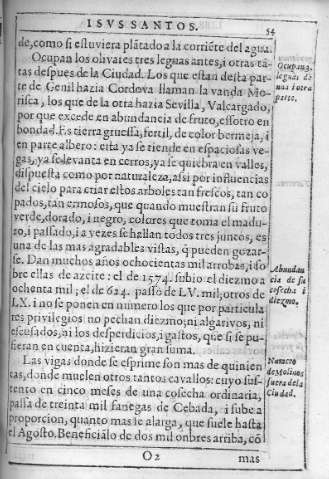 ISVS SANTOS.
54
de, como si estuviera plãtado a la corriẽte del agua.
Ocupan los olivares tres leguas antes, i otras tã-
tas despues de la Ciudad. Los que estan desta par-
te de Genil hazia Cordova llaman la vanda Mo-
risca, los que de la otra hazia Sevilla, Valcargado,
por que excede en abundancia de fruto, essotro en
bondad. Es tierra gruessa, fertil, de color bermeja, i
en parte albero: esta ya se tiende en espaciosas ve-
gas, ya se levanta en cerros, ya se quiebra en valles,
dispuesta como por naturaleza, assi por influencias
del cielo para criar estos arboles tan frescos, tan co
pados, tan ermosos, que quando muestran su fruto
verde, dorado, i negro, colores que toma el madu-
ro, i passado, i a vezes se hallan todos tres juncos, es
una de las mas agradables vistas, q̃ pueden gozar-
se. Dan muchos años ochocientas mil arrobas, i so
bre ellas de azeite: el de 1574. subio el diezmo a
ochenta mil; el de 624. passò de LV. mil; otros de
LX. i no se ponen en numero los que por particula
res privilegios no pechan diezmo; ni algarivos, ni
escusados, ni los desperdicios, i gastos, que si se pu-
sieran en cuenta, hizieran gran suma.
Las vigas donde se esprime son mas de quinien
tas, donde muelen otros tantos cavallos: cuyo sus-
tento en cinco meses de una cosecha ordinaria,
passa de treinta mil fanegas de Cebada, i sube a
proporcion, quanto mas se alarga, que suele hasta
el Agosto. Beneficiãlo de dos mil onbres arriba, cõ
O 2
mas
Ocupan 3.
leguas de
una i otra
parte.
Abundan
cia de su
cosecha i
diezmo.
Numero
de Molinos
fuera de la
Ciudad.